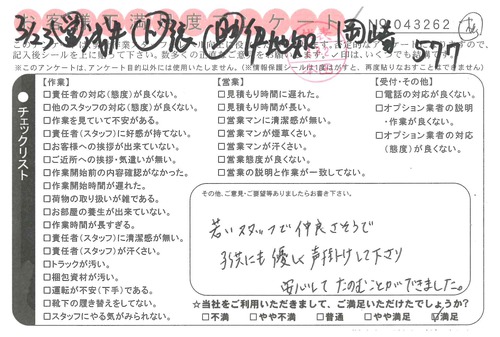 お客様ご満足度アンケート
No. 043262
577
※このアンケートは、アンケート目的以外には使用いたしません。(※情報保護シールは1度はがすと、再度貼りなおすことはできません)
チェックリスト
【作業】
□責任者の対応(態度)が良くない。
□他のスタッフの対応(態度)が良くない。
□作業を見ていて不安がある。
□責任者(スタッフ)に好感が持てない。
□お客様への挨拶が出来ていない。
□ご近所への挨拶・気遣いが無い。
□作業開始前の内容確認がなかった。
□作業開始時間が遅れた。
□荷物の取り扱いが雑である。
□お部屋の養生が出来ていない。
□作業時間が長すぎる。
□責任者(スタッフ)に清潔感が無い。
□責任者(スタッフ)が汗くさい。
□トラックが汚い。
□梱包資材が汚い。
□運転が不安(下手)である。
□靴下の履き替えをしてない。
□スタッフにやる気がみられない。
【営業】
□見積もり時間に遅れた。
□見積もり時間が長い。
□営業マンに清潔感が無い。
□営業マンが煙草くさい。
□営業マンが汗くさい。
□営業態度が良くない。
□営業の説明と作業が一致してない。
【受付・その他】
□電話の対応が良くない。
□オプション業者の説明
・作業が良くない。
□オプション業者の対応
(態度)が良くない。
その他、ご意見・ご要望等ありましたらお書き下さい。
若いスタッフで仲良さそうで
子供にも優しく声掛けして下さり
安心してたのむことができました。
☆当社をご利用いただきまして、ご満足いただけたでしょうか?
□不満 □やや不満 □普通 □やや満足 ☑満足